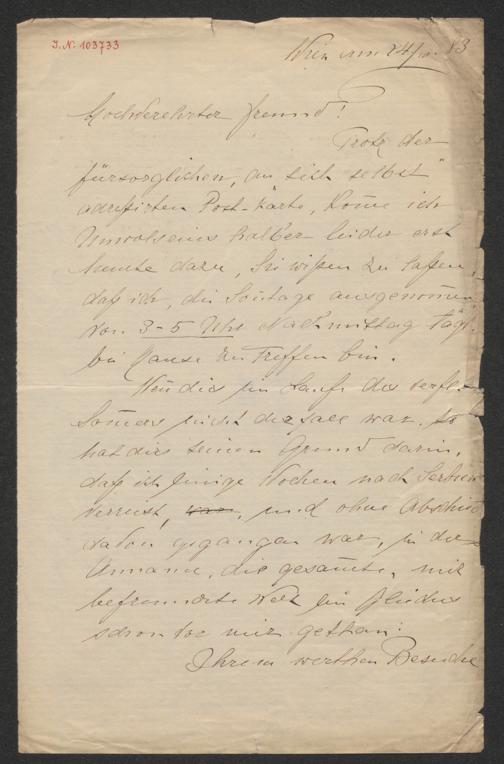 J.N. 103733
Wien am 24/10. 83
Hochverehrter Freund!
Trotz der
fürsorglichen, an sich selbst
adressirten Post-Karte, kom̄e ich
Unwolseins halber leider erst
heute dazu, Sie wißen zu laßen,
daß ich, die Son̄tage ausgenom̄en,
von 3-5 Uhr Nachmittag tägl.
bei Hause zu treffen bin.
Wen̄ dies im Laufe des verfl.
Som̄ers nicht der Fall war, so
hat dies seinen Grund darin,
daß ich einige Wochen nach Serbien
verreist, war, und ohne Abschied
davon gegangen war, in der
Annahme, die gesam̄te, mir
befreundete Welt ein Gleiches
schon vor mir gethan:
Ihrem werthen Besuche